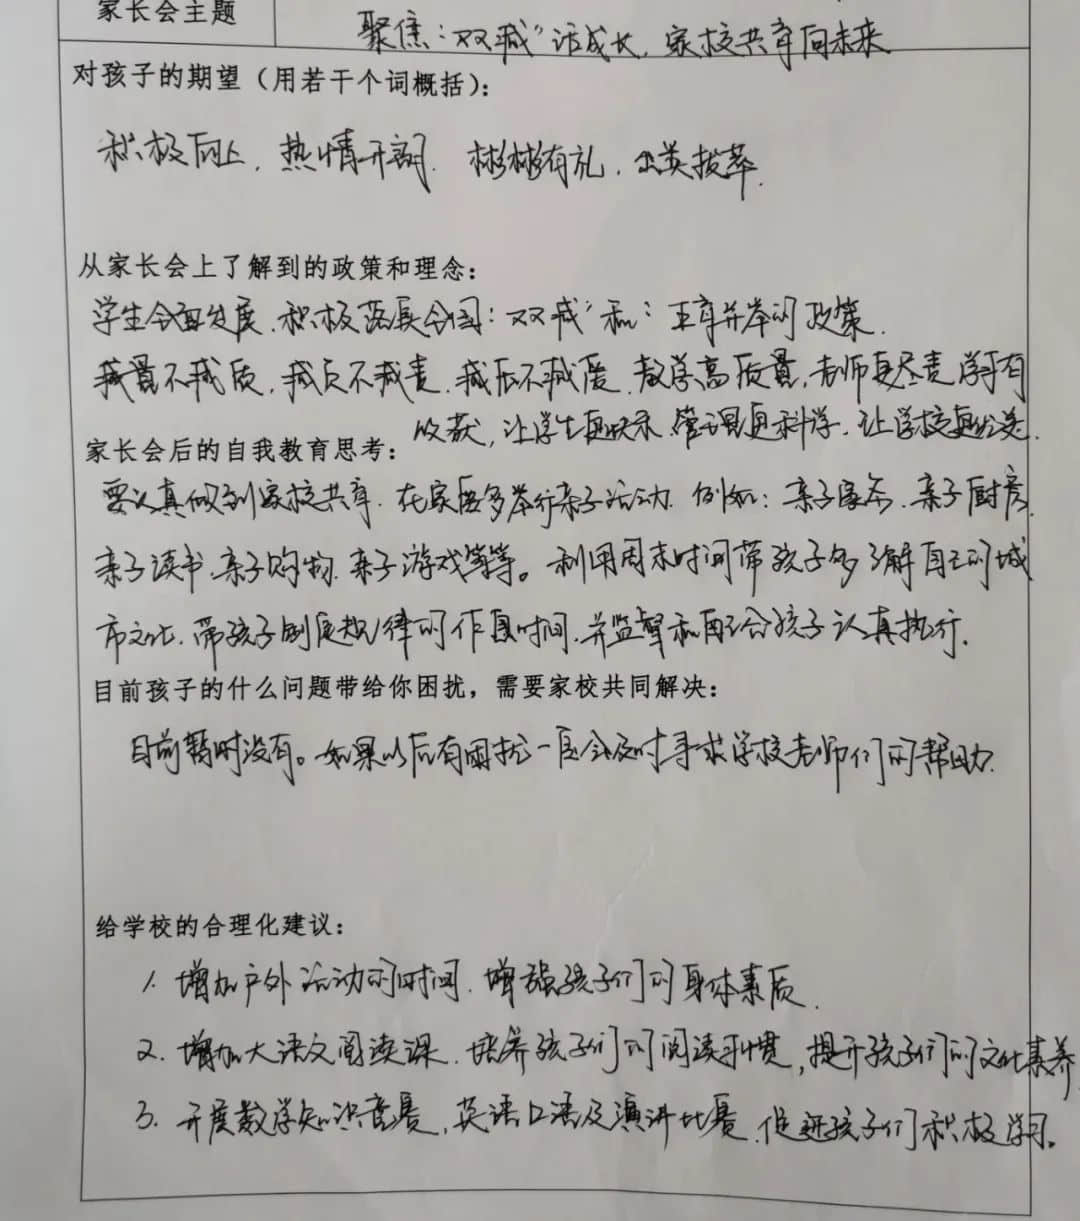 家长会主题
聚焦"双减"话成长，家校共育向未来
对孩子的期望（用若干个词概括）：
积极向上，热情开朗，彬彬有礼，出类拔萃.
从家长会上了解到的政策和理念：
学生全面发展，积极落实全国"双减"和"五育并举"的政策.
减量不减质，减负不减责，减压不减度，教学高质量，老师更尽责，学习有
收获，让学生更快乐，管理更科学，让学校更优美.
家长会后的自我教育思考：
要认真做到家校共育，在家应多举行亲子活动，例如：亲子家务，亲子厨房，
亲子读书，亲子购物，亲子游戏等等。利用周末时间带孩子多了解自己的城
市文化，带孩子制定规律的作息时间，并监督和配合孩子认真执行.
目前孩子的什么问题带给你困扰，需要家校共同解决：
目前暂时没有。如果以后有困扰一定会及时寻求学校老师们的帮助.
给学校的合理化建议：
1. 增加户外活动的时间，增强孩子们的身体素质.
2. 增加大语文阅读课，培养孩子们的阅读习惯，提升孩子们的文化素养
3. 开展数学知识竞赛，英语口语及演讲比赛，促进孩子们积极学习。